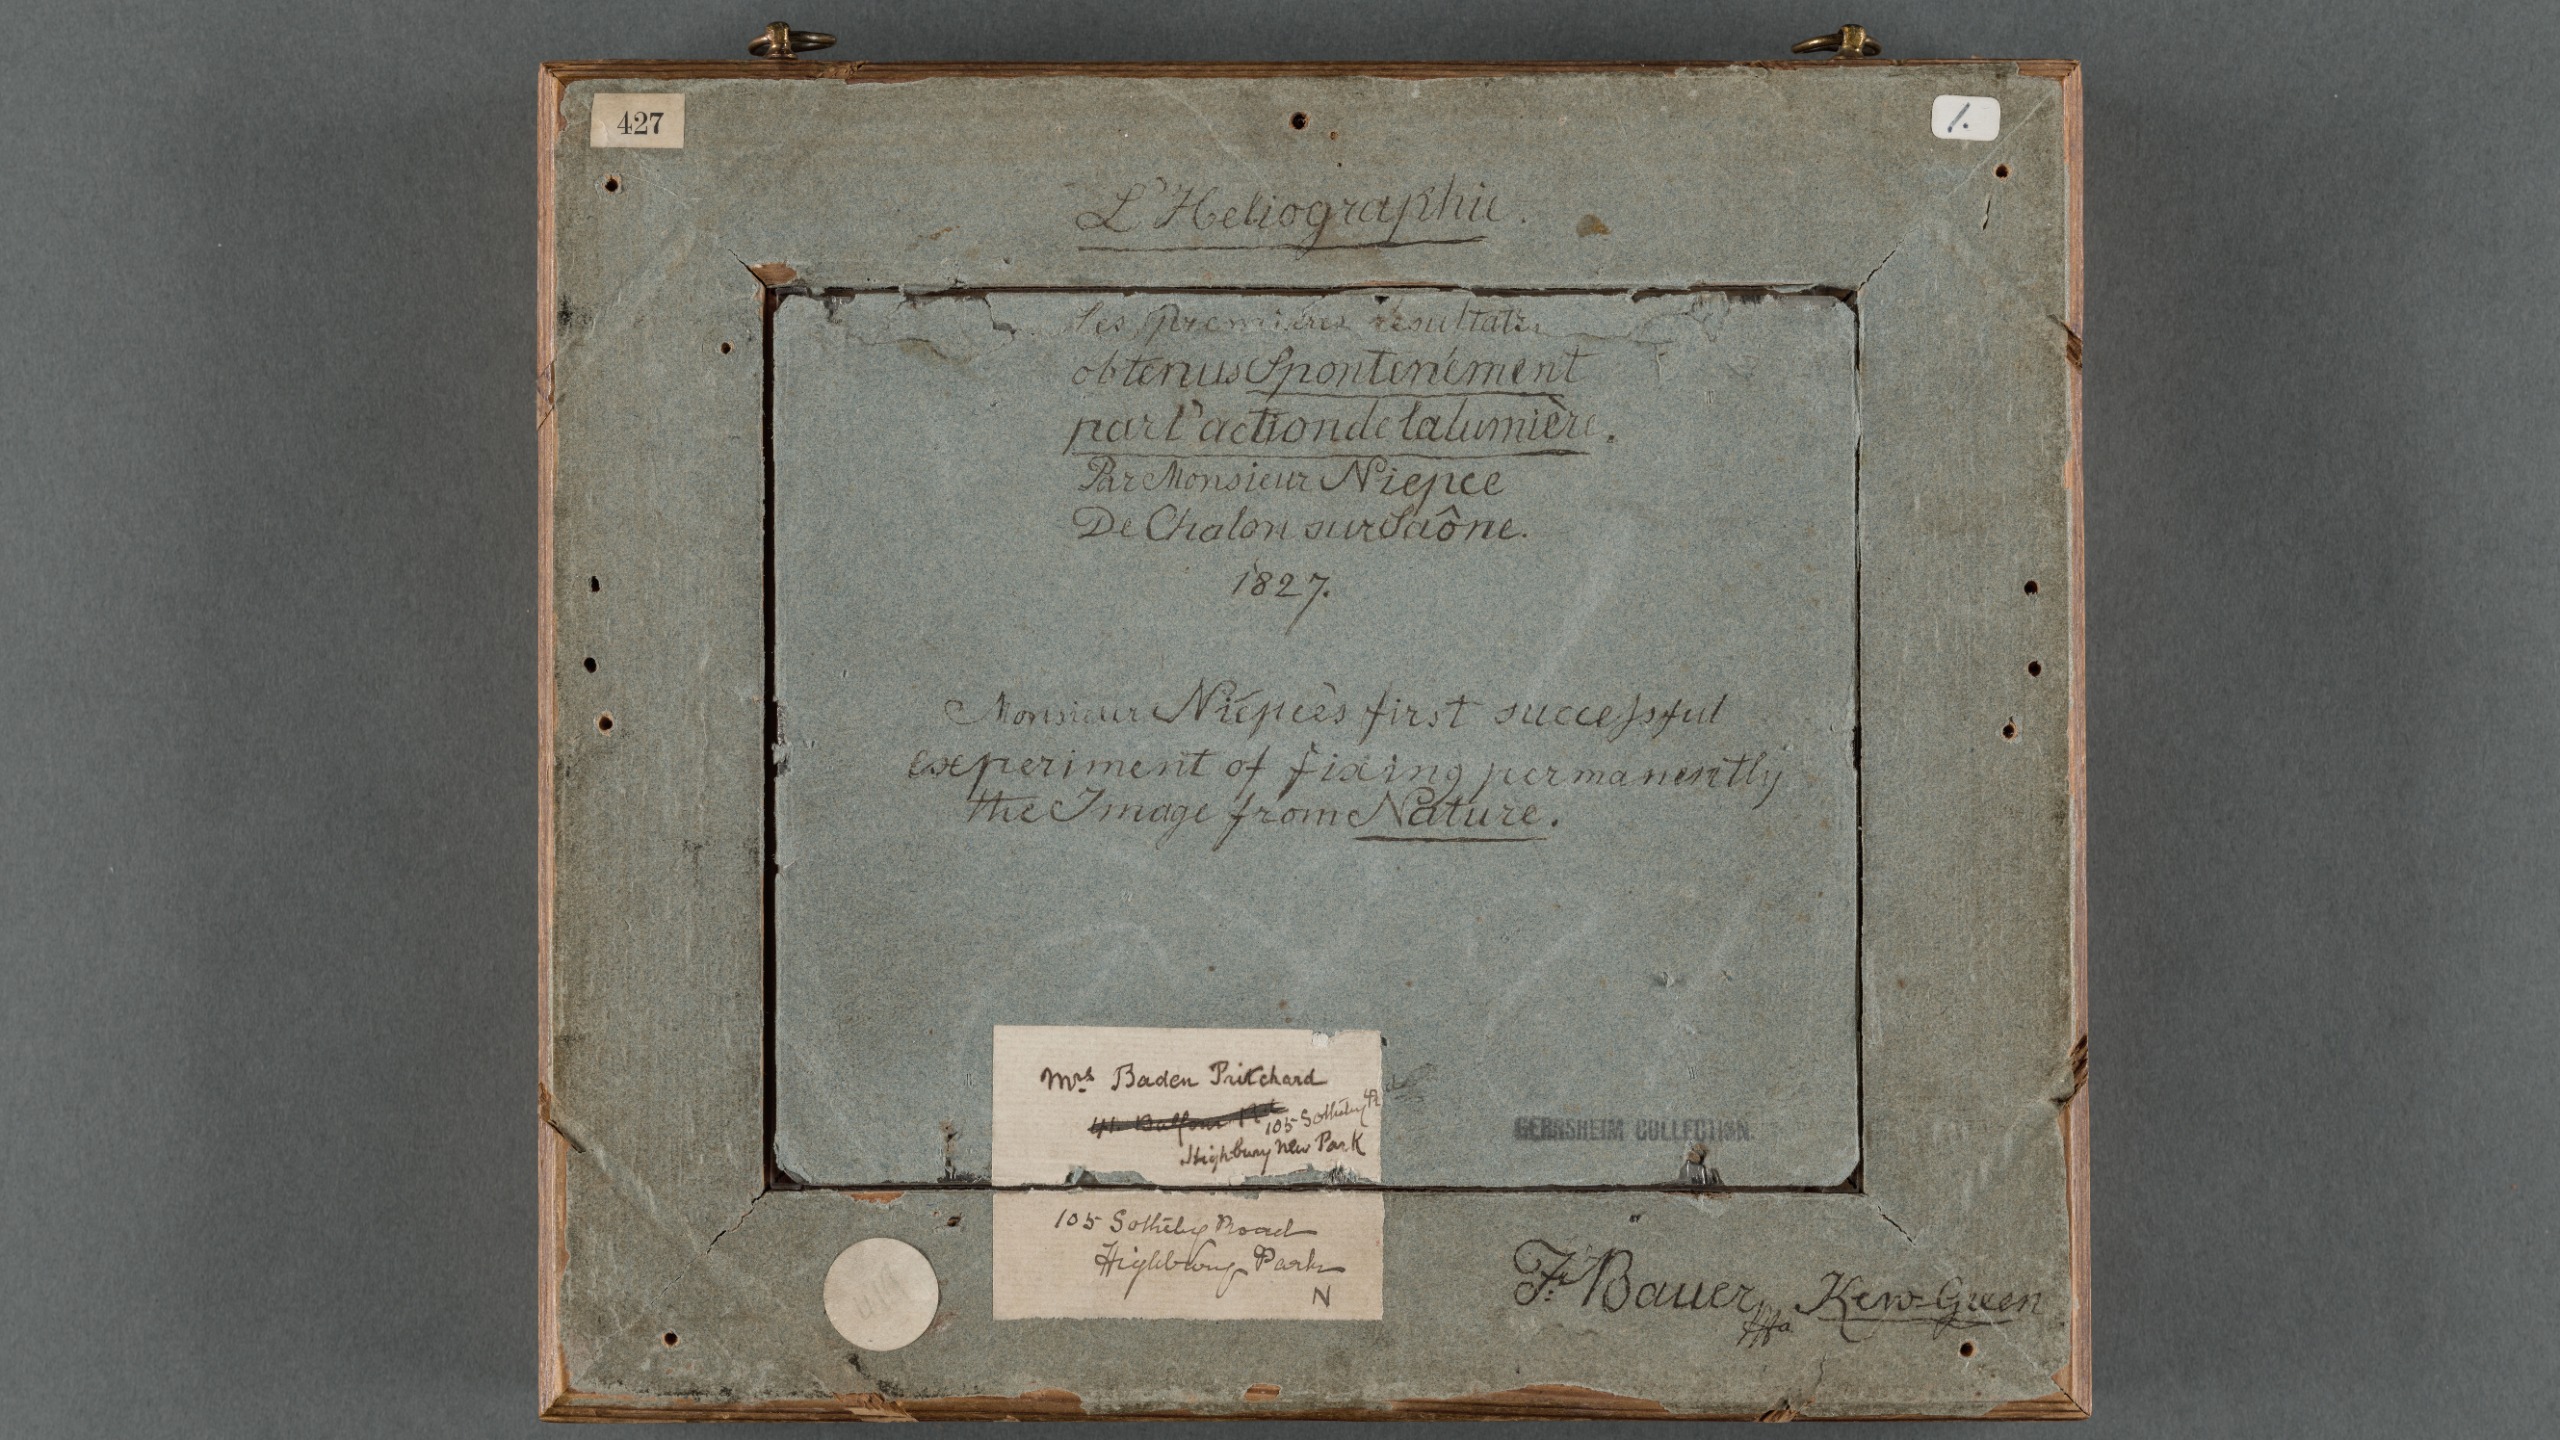 427
1.
L'Heliographie.
Les premières résultats
obtenus Spontenément
par l'action de la lumière.
Par Monsieur Niepce
De Chalon sur Saône.
1827.
Monsieur Niepce's first successful
experiment of fixing permanently
the Image from Nature.
Mrs Baden Pritchard
Balfour Rd 105 Sotheby Rd
Highbury New Park
GERNSHEIM COLLECTION.
105 Sotheby Road
Highbury Park
N
Fr. Bauer Kew Green